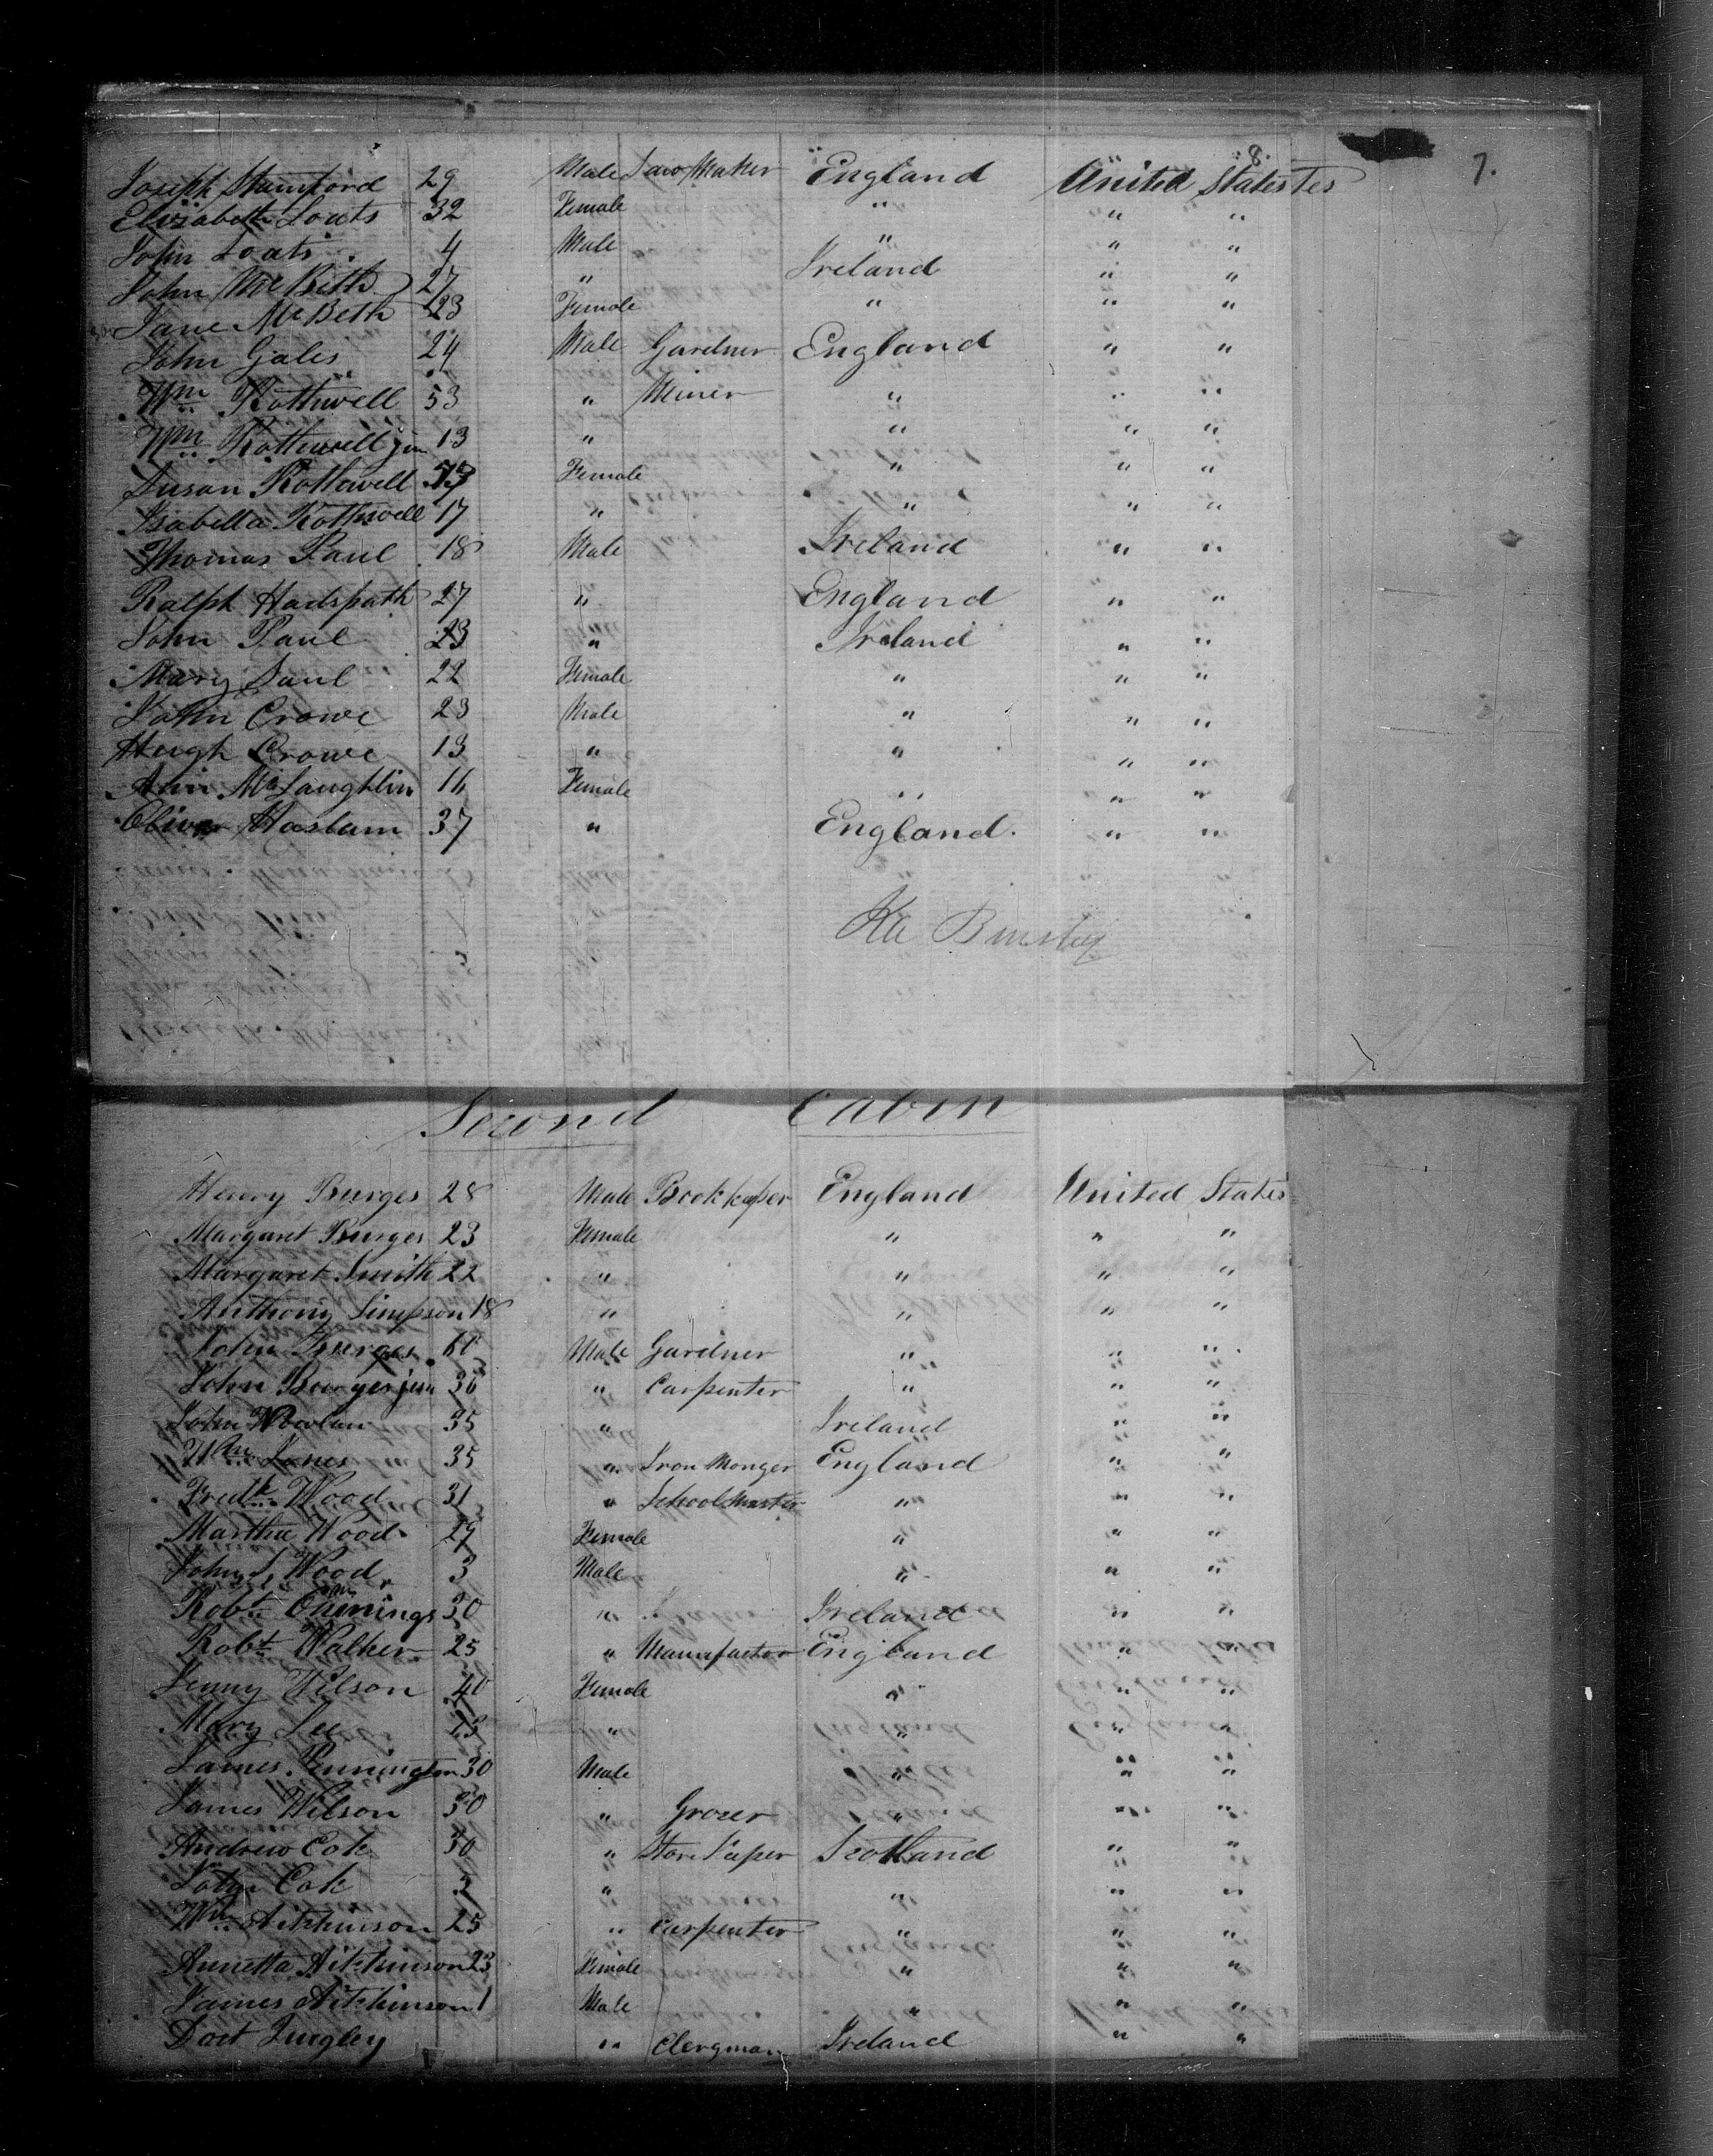 8.
7.
Joseph Stamford 29 Male Saw Maker England United States tes
Elizabeth Loats 32 Female " " "
John Loats 4 Male " " "
John McBeth 27 " Ireland " "
Jane McBeth 23 Female " " "
John Gales 24 Male Gardner England " "
Wm Rothwell 53 " Miner " " "
Wm Rothwell jun 13 " " " "
Susan Rothwell Female " " "
Isabella Rothwell 17 " " " "
Thomas Paul 18 Male Ireland " "
Ralph Hadspath 27 " England " "
John Paul 23 " Ireland " "
Mary Paul 22 Female " " "
John Crowe 23 Male " " "
Hugh Crowe 13 " " " "
Ann McLaughlin 16 Female " " "
Oliver Haslam 37 " England. " "
Second Cabin
Henry Burges 28 Male Book keeper England United States
Margaret Burges 23 Female " " "
Margaret Smith 22 " " " "
Anthony Simpson 18 " " " "
John Burges 60 Male Gardner " " "
John Burges jun 36 " Carpenter " " "
John Nowlan 35 " Ireland " "
Wm Jones 35 " Iron Monger England " "
Fredk Wood 31 " School Master " " "
Martha Wood 29 Female " " "
John S Wood 3 Male " " "
Robt 30 " Ireland " "
Robt Walker 25 " Manufactor England " "
Jenny Wilson 40 Female " " "
Mary Lee 23 " " " "
James Pennington 30 Male " " "
James Wilson 30 " Grocer " " "
Andrew Cok 30 " Store Keeper Scotland " "
John Cok 3 " " " "
Wm Aitkinson 25 " Carpenter " " "
Annetta Aitkinson 23 Female " " "
James Aitkinson 1 Male " " "
Doct Lingley " Clergman Ireland " "